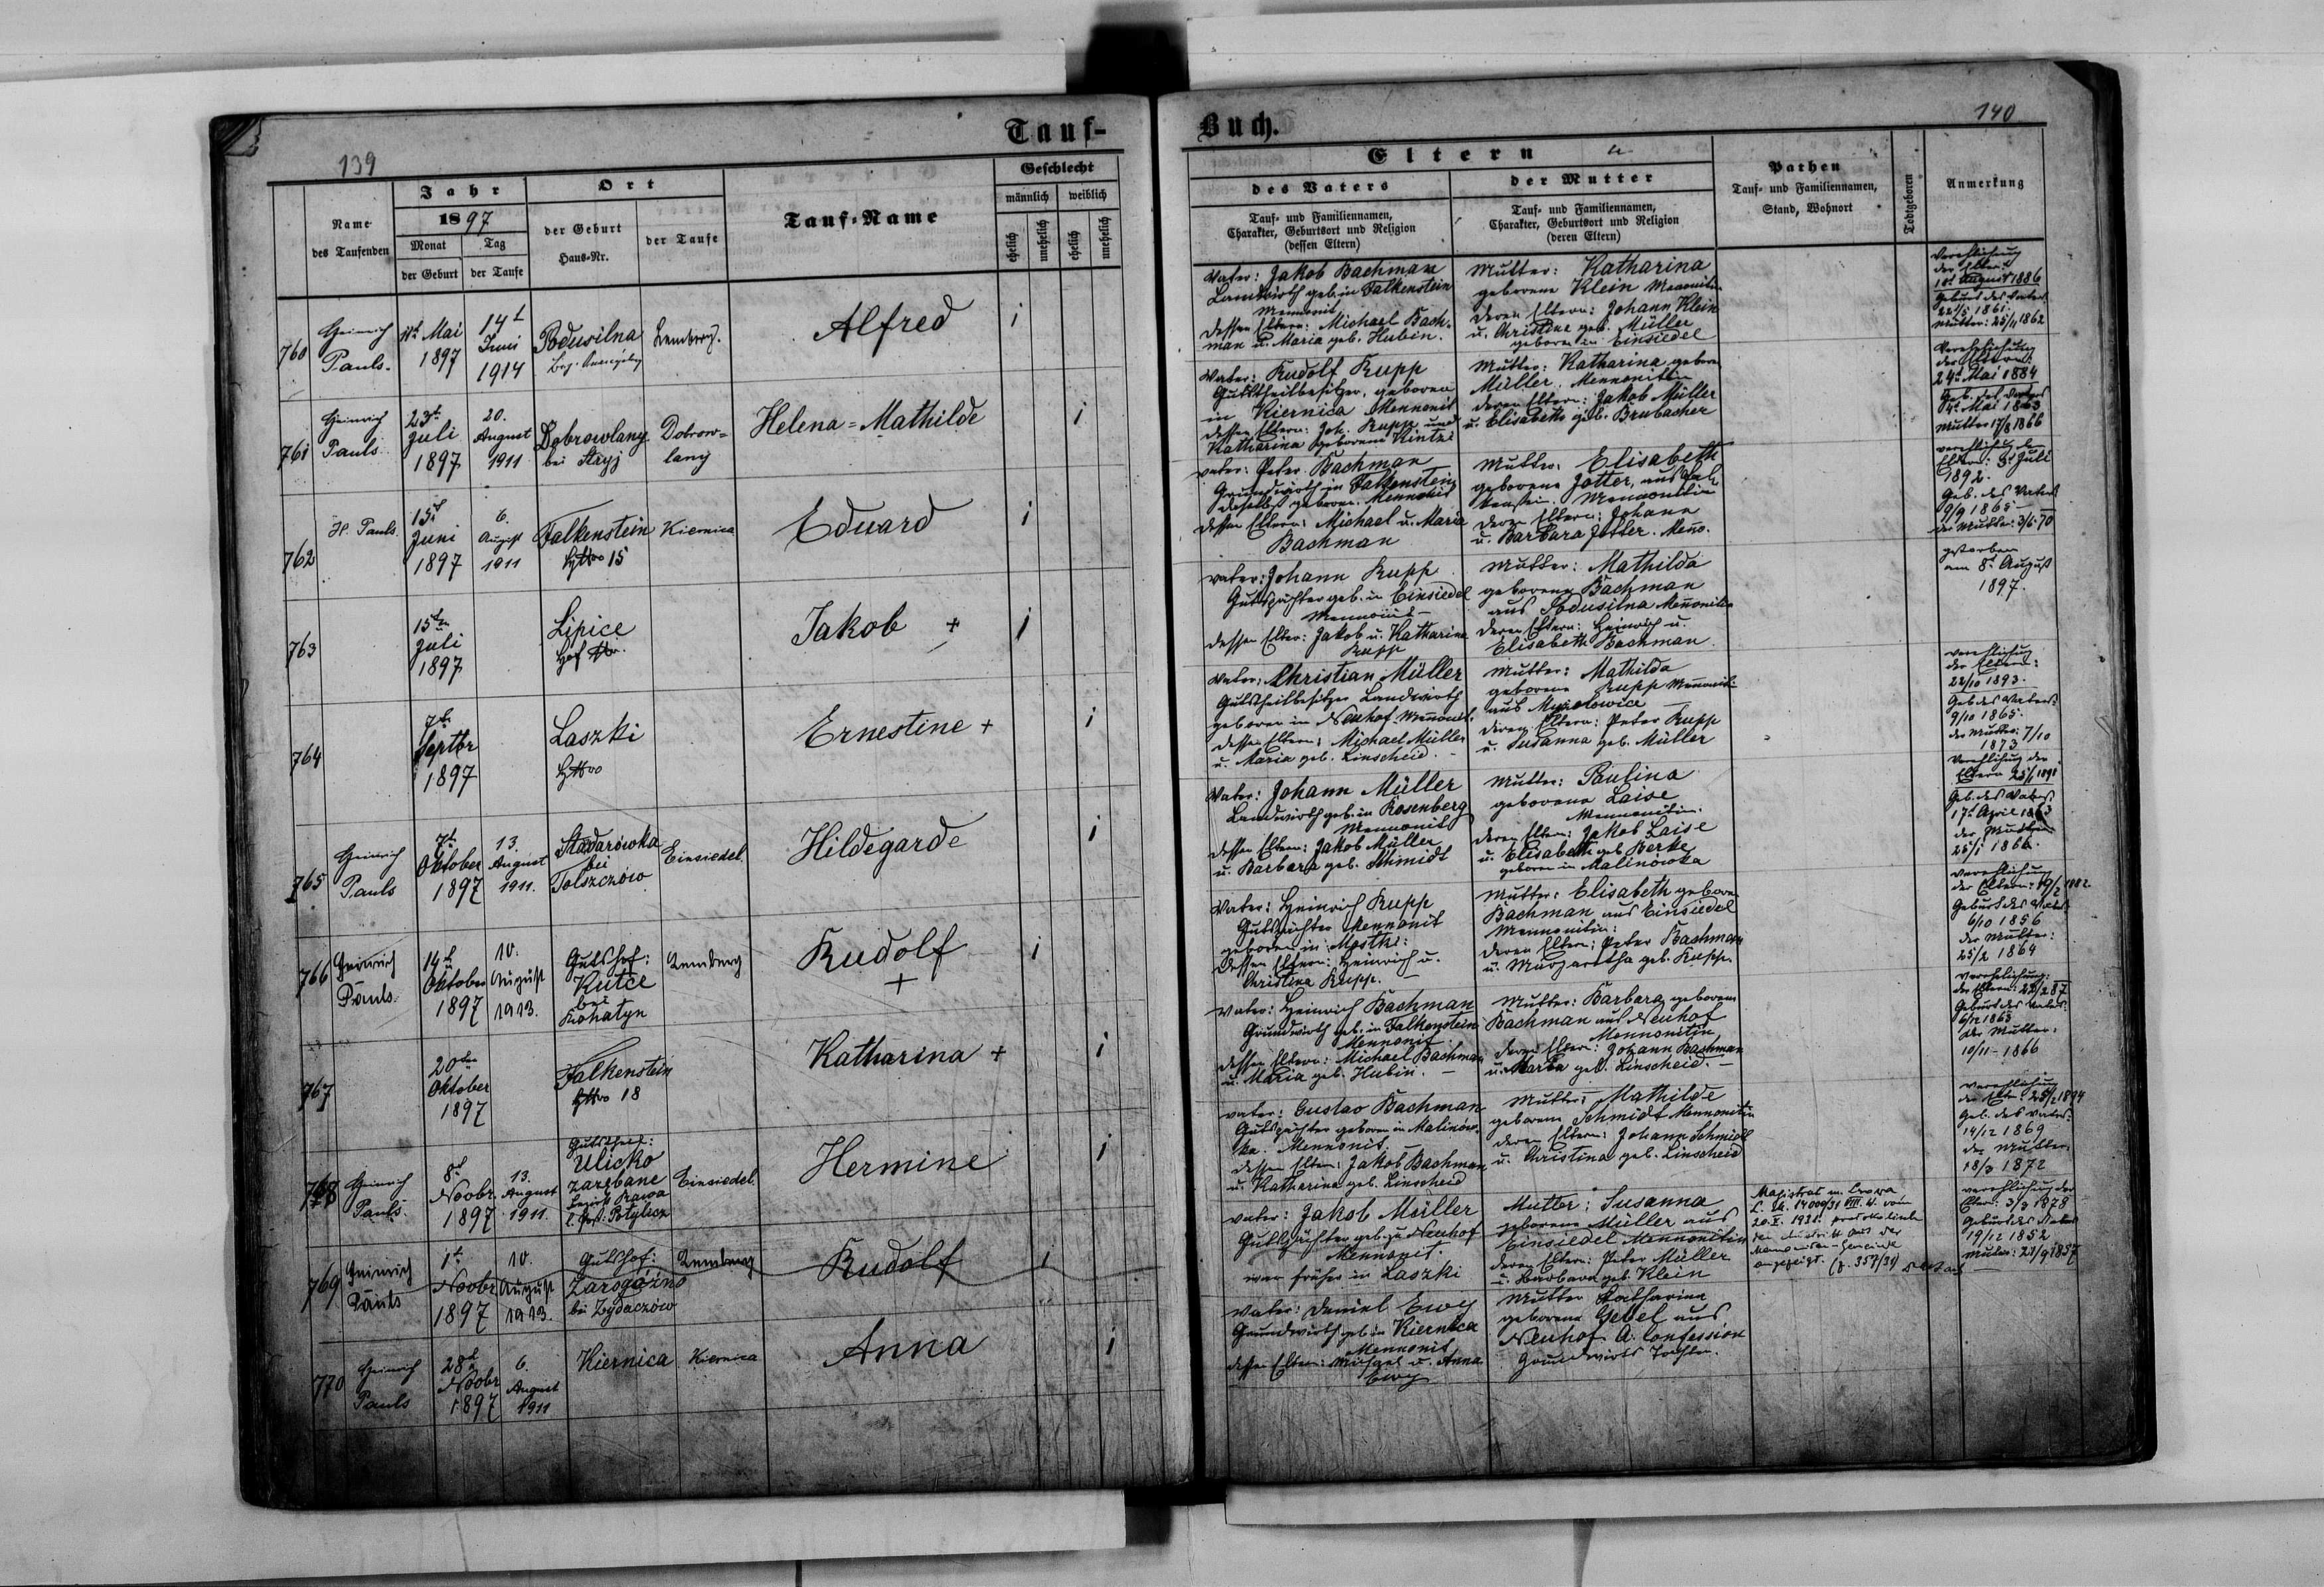 139
Tauf-
Name
des Taufenden
Jahr
1897
Monat
Tag
der Geburt
der Taufe
Ort
der Geburt
Haus-Nr.
der Taufe
Tauf-Name
Geschlecht
männlich
weiblich
ehelich
unehelich
ehelich
unehelich
760
Heinrich
Pauls.
Mai
1897
14t
Juni
1914
Podusilna
Lemberg.
Alfred
1
761
Heinrich
Pauls
23t
Juli
1897
20.
August
1911
Dobrowlany
bei Stryj
Dobrow=
lany
Helena=Mathilde
1
762
H. Pauls.
15t
Juni
1897
6.
August
1911
Falkenstein
HNro 15
Kiernica
Eduard
1
763
15ten
Juli
1897
Lipice
Hof Nr.
Jakob +
1
764
7t
Septbr
1897
Laszki
HNro
Ernestine +
1
765
Heinrich
Pauls
7t
Oktober
1897
13.
August
1911.
bei
Tolszczów
Einsiedel.
Hildegarde
1
766
Heinrich
Pauls.
14t
Oktober
1897
10.
August
1913.
Gutshof:
Kutce
bei
Rohatyn
Lemberg
Rudolf
+
1
767
20ten
Oktober
1897
Falkenstein
HNro 18
Katharina +
1
768
Heinrich
Pauls.
8t
Novbr.
1897
13.
August
1911.
Ulicko
zarębane
Bezirk Rawa
l. Post: Potylicz
Einsiedel.
Hermine
1
769
Heinrich
Pauls
1t
Novbr
1897
10.
August
1913.
Gutshof:
bei Zydaczów
Lemberg
Rudolf
1
770
Heinrich
Pauls
28t
Novbr
1897
6.
August
1911
Kiernica
Kiernica
Anna
1
140
Buch.
Eltern
des Vaters
Tauf- und Familiennamen,
Charakter, Geburtsort und Religion
(dessen Eltern)
der Mutter
Tauf- und Familiennamen,
Charakter, Geburtsort und Religion
(deren Eltern)
Pathen
Tauf- und Familiennamen,
Stand, Wohnort
Todtgeboren
Anmerkung
Vater: Jakob Bachmann
Landwirth geb. in Falkenstein
Mennonit
dessen Eltern: Michael Bach-
man u. Maria geb. Hubin.
Mutter: Katharina
geborene Klein Mennonitin
deren Eltern: Johann Klein
u. Christine geb. Müller
geboren in Einsiedel
Verehlichung
der Eltern
10t August 1886
Geburt des Vaters
22/5 1861.
Mutter: 25/11 1862
Vater: Rudolf Rupp
Gutstheilbesitzer, geboren
in Kiernica Mennonit
dessen Eltern: Joh. Rupp und
Katharina geborene Kintzi
Mutter: Katharina geborene
Müller. Mennonitin
deren Eltern: Jakob Müller
u. Elisabeth geb. Brubacher
Verehelichung
der Eltern:
24t Mai 1884
Geb. des Vaters
Mai 1863
Mutter 17/8 1866
Vater: Peter Bachman
Grundwirth in Falkenstein
daselbst geboren. Mennonit
dessen Eltern: Michael u. Maria
Bachman
Mutter: Elisabeth
geborene Jotter, aus Fal-
kenstein. Mennonitin
deren Eltern: Johann
u. Barbara Jotter. Menno.
Verehlichung der
Eltern: 3t Juli
1892.
Geb. des Vaters
9/9 1865
der Mutter: 3/6 70
Vater: Johann Rupp
Gutspächter geb. in Einsiedel
Mennonit
dessen Eltern: Jakob u. Katharina
Rupp
Mutter: Mathilda
geborene Bachman
aus Podusilna Mennonitin
deren Eltern: Heinrich u.
Elisabeth Bachman.
gestorben
am 8t August
1897.
Vater: Christian Müller
Gutstheilbesitzer Landwirth
geboren in Neuhof. Mennonit.
dessen Eltern: Michael Müller
u. Maria geb. Linscheid.
Mutter: Mathilda
geborene Rupp Mennonitin
deren Eltern: Peter Rupp
u. Susanna geb. Müller
Verehlichung
der Eltern:
22/10 1893.
Geb des Vaters:
9/10 1865.
der Mutter: 7/10
1873
Vater: Johann Müller
Landwirth geb. in Rosenberg
Mennonit
dessen Eltern: Jakob Müller
u. Barbara geb. Schmidt
Mutter: Paulina
geborene Laise
Mennonitin.
deren Eltern: Jakob Laise
u. Elisabeth geb. Berke
geboren in Malinówka
Verehlichung der
Eltern 25/1 1891
Geb. des Vaters:
17t April 1863
der Mutter
25/1 1866.
Vater: Heinrich Rupp
Gutspächter Mennonit
geboren in Mostki:
dessen Eltern: Heinrich u.
Christina Rupp.
Mutter: Elisabeth geborene
Bachman aus Einsiedel
Mennonitin:
deren Eltern: Peter Bachman
u. Margaretha geb. Rupp.
Verehlichung
der Eltern: 19/2 1882.
Geburt des Vaters
6/10 1856
der Mutter:
25/2 1864
Vater: Heinrich Bachman
Grundwirth geb. in Falkenstein
Mennonit.
dessen Eltern: Michael Bachman
u. Maria geb. Hubin.
Mutter: Barbara geborene
Bachman aus Neuhof
Mennonitin
deren Eltern: Johann Bachman
u. Maria geb. Linscheid.
Verehelichung:
der Eltern: 22/2 87
Geburt des Vaters:
6/12 1863
der Mutter:
10/11 - 1866
Vater: Gustav Bachman
Gutspächter geboren in Malinów-
ka. Mennonit
dessen Eltern: Jakob Bachman
u. Katharina geb. Linscheid
Mutter: Mathilde
geborene Schmidt Mennonitin
deren Eltern: Johann Schmidt
u. Christina geb. Linscheid
Verehlichung
der Eltern: 25/2 1894
Geb. des Vaters:
14/12 1869
der Mutter
18/3 1872
Vater: Jakob Müller
Gutspächter geb. zu Neuhof
Mennonit.
war früher in Laszki
Mutter: Susanna
geborene Müller aus
Einsiedel Mennonitin
deren Eltern: Peter Müller
u. Barbara geb. Klein
Magistrat m. Lwowa
20.X. 1931.
den Austritt aus der
Mennoniten-Gemeinde
angezeigt. (z. 357/31)
Verehlichung der
Eltern: 3/3 1878
Geburt des Vaters
19/12 1852
Mutter: 21/9 1857
Vater: Daniel Ewy
Grundwirth geb. in Kiernica
Mennonit
dessen Eltern: Michael u. Anna
Ewy
Mutter Katharina
geborene Gebel aus
Neuhof A. Confession
Grundwirts Tochter.